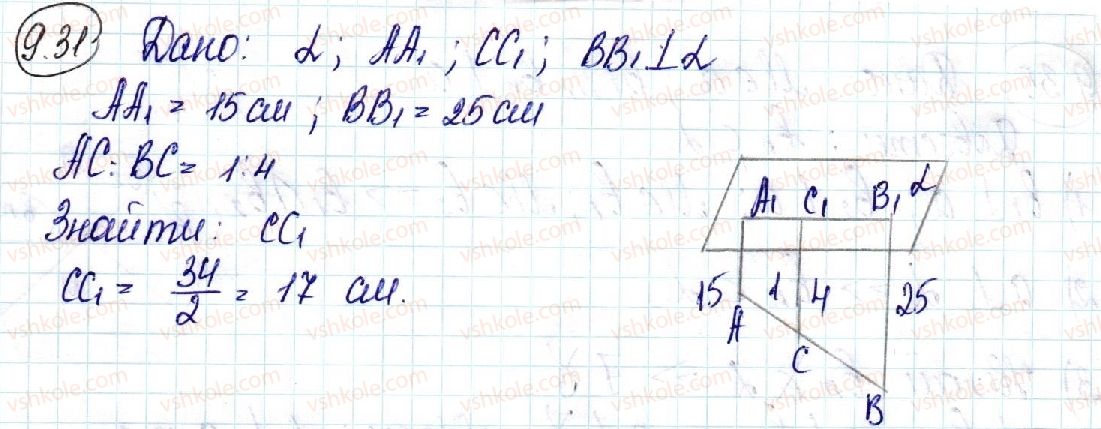 9.31 Дано: α; AA₁; CC₁; BB₁⊥α
AA₁ = 15 см; BB₁ = 25 см
AC:BC = 1:4
Знайти: CC₁
CC₁ = 34/2 = 17 см.
A₁ C₁ B₁ α
15 1 4 25
A
C
B
vshkole.com